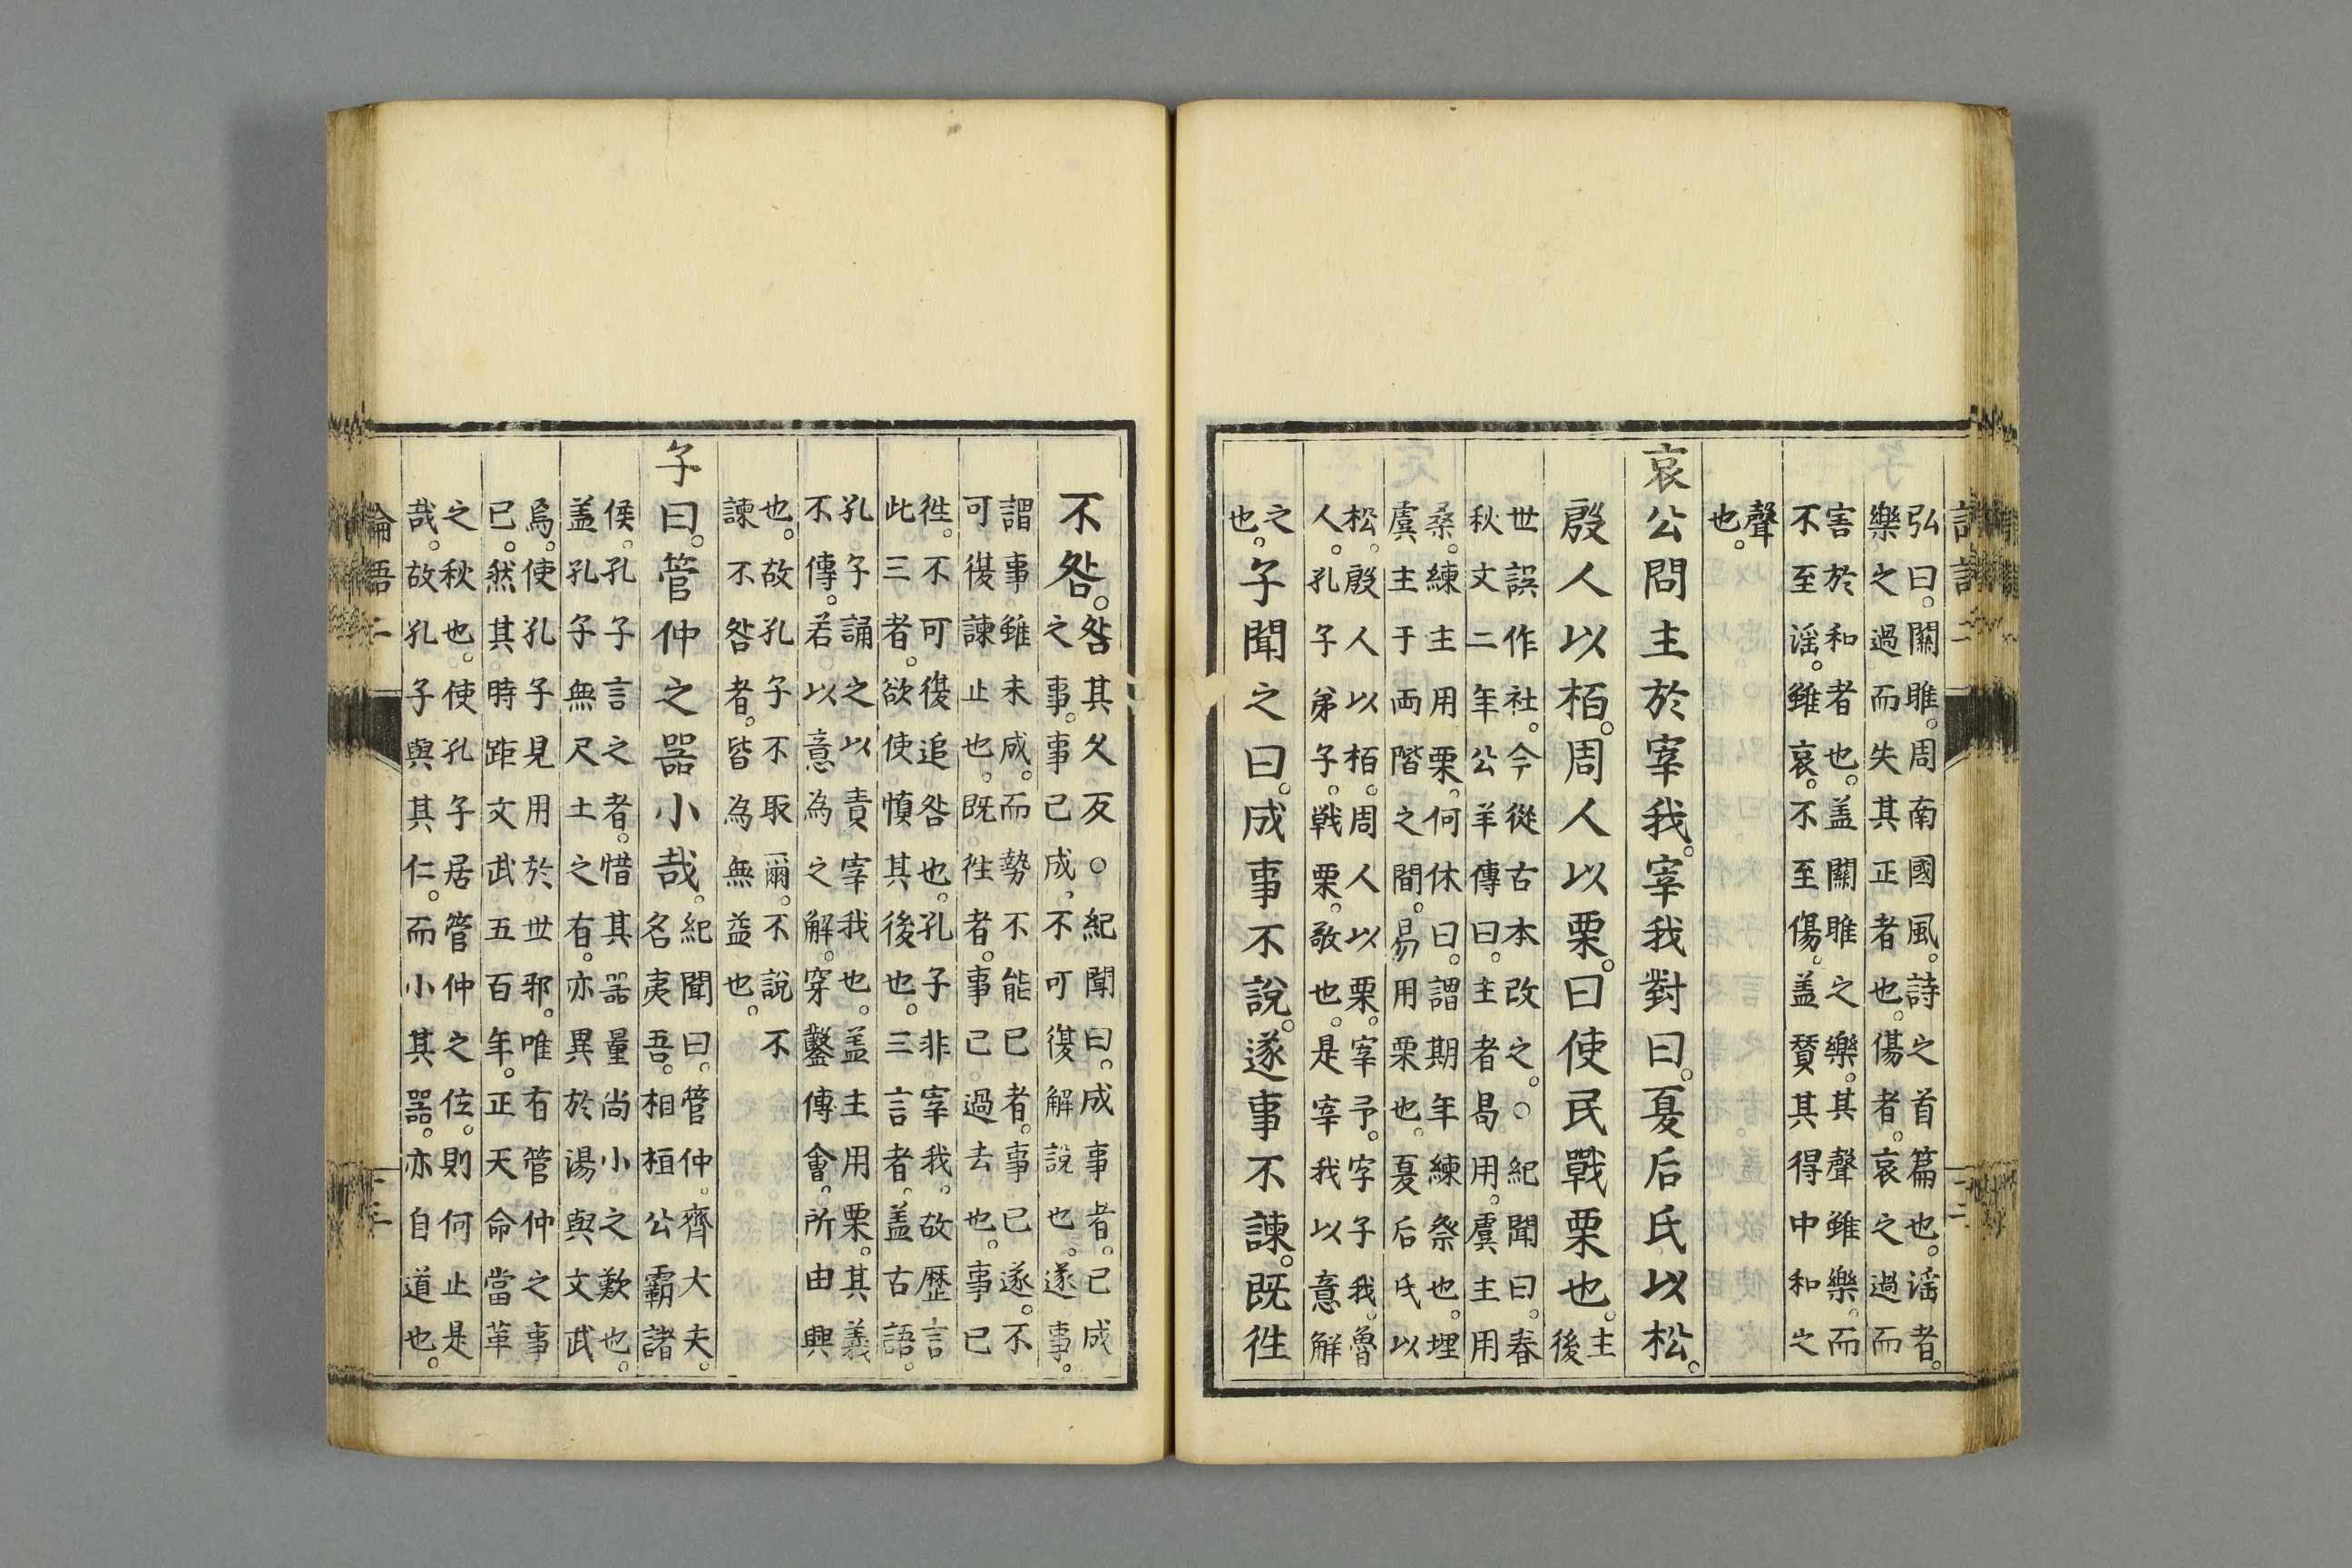 弘曰。關雎。周南國風。詩之首篇也。滛者。
樂之過而失其正者也。傷者。哀之過而
害於和者也。盖關雎之樂。其聲雖樂。而
不至滛。雖哀。不至傷。盖賛其得中和之
聲
也。
哀公問主於宰我。宰我對曰。夏后氏以松。
殷人以栢。周人以栗。曰使民戰栗也。主
後
世誤作社。今從古本改之。○紀聞曰。春
秋文二年公羊傳曰。主者曷用。虞主用
桑。練主用栗。何休曰。謂期年練祭也。埋
虞主于両階之間。易用栗也。夏后氏以
松。殷人以栢。周人以栗。宰予。字子我。魯
人。孔子弟子。戦栗。敬也。是宰我以意解
之
也。子聞之曰。成事不說。遂事不諫。既徃
不咎。咎其久反○紀聞曰。成事者。已成
之事。事已成。不可復解說也。遂事。
謂事雖未成。而勢不能已者。事已遂。不
可復諫止也。既徃者。事已過去也。事已
徃。不可復追咎也。孔子非宰我。故歴言
此三者。欲使慎其後也。三言者。盖古語。
孔子誦之以責宰我也。盖主用栗。其義
不傳。若以意為之解。穿鑿傳會。所由興
也。故孔子不取爾。不說不
諫不咎者。皆為無益也。
子曰。管仲之噐小哉。紀聞曰。管仲。齊大夫。
名夷吾。相桓公霸諸
侯。孔子言之者。惜其噐量尚小之歎也。
盖孔子無尺土之有。亦異於湯與文武
焉。使孔子見用於世邪。唯有管仲之事
已。然其時距文武五百年。正天命當革
之秋也。使孔子居管仲之位。則何止是
哉。故孔子與其仁。而小其噐。亦自道也。
論語二